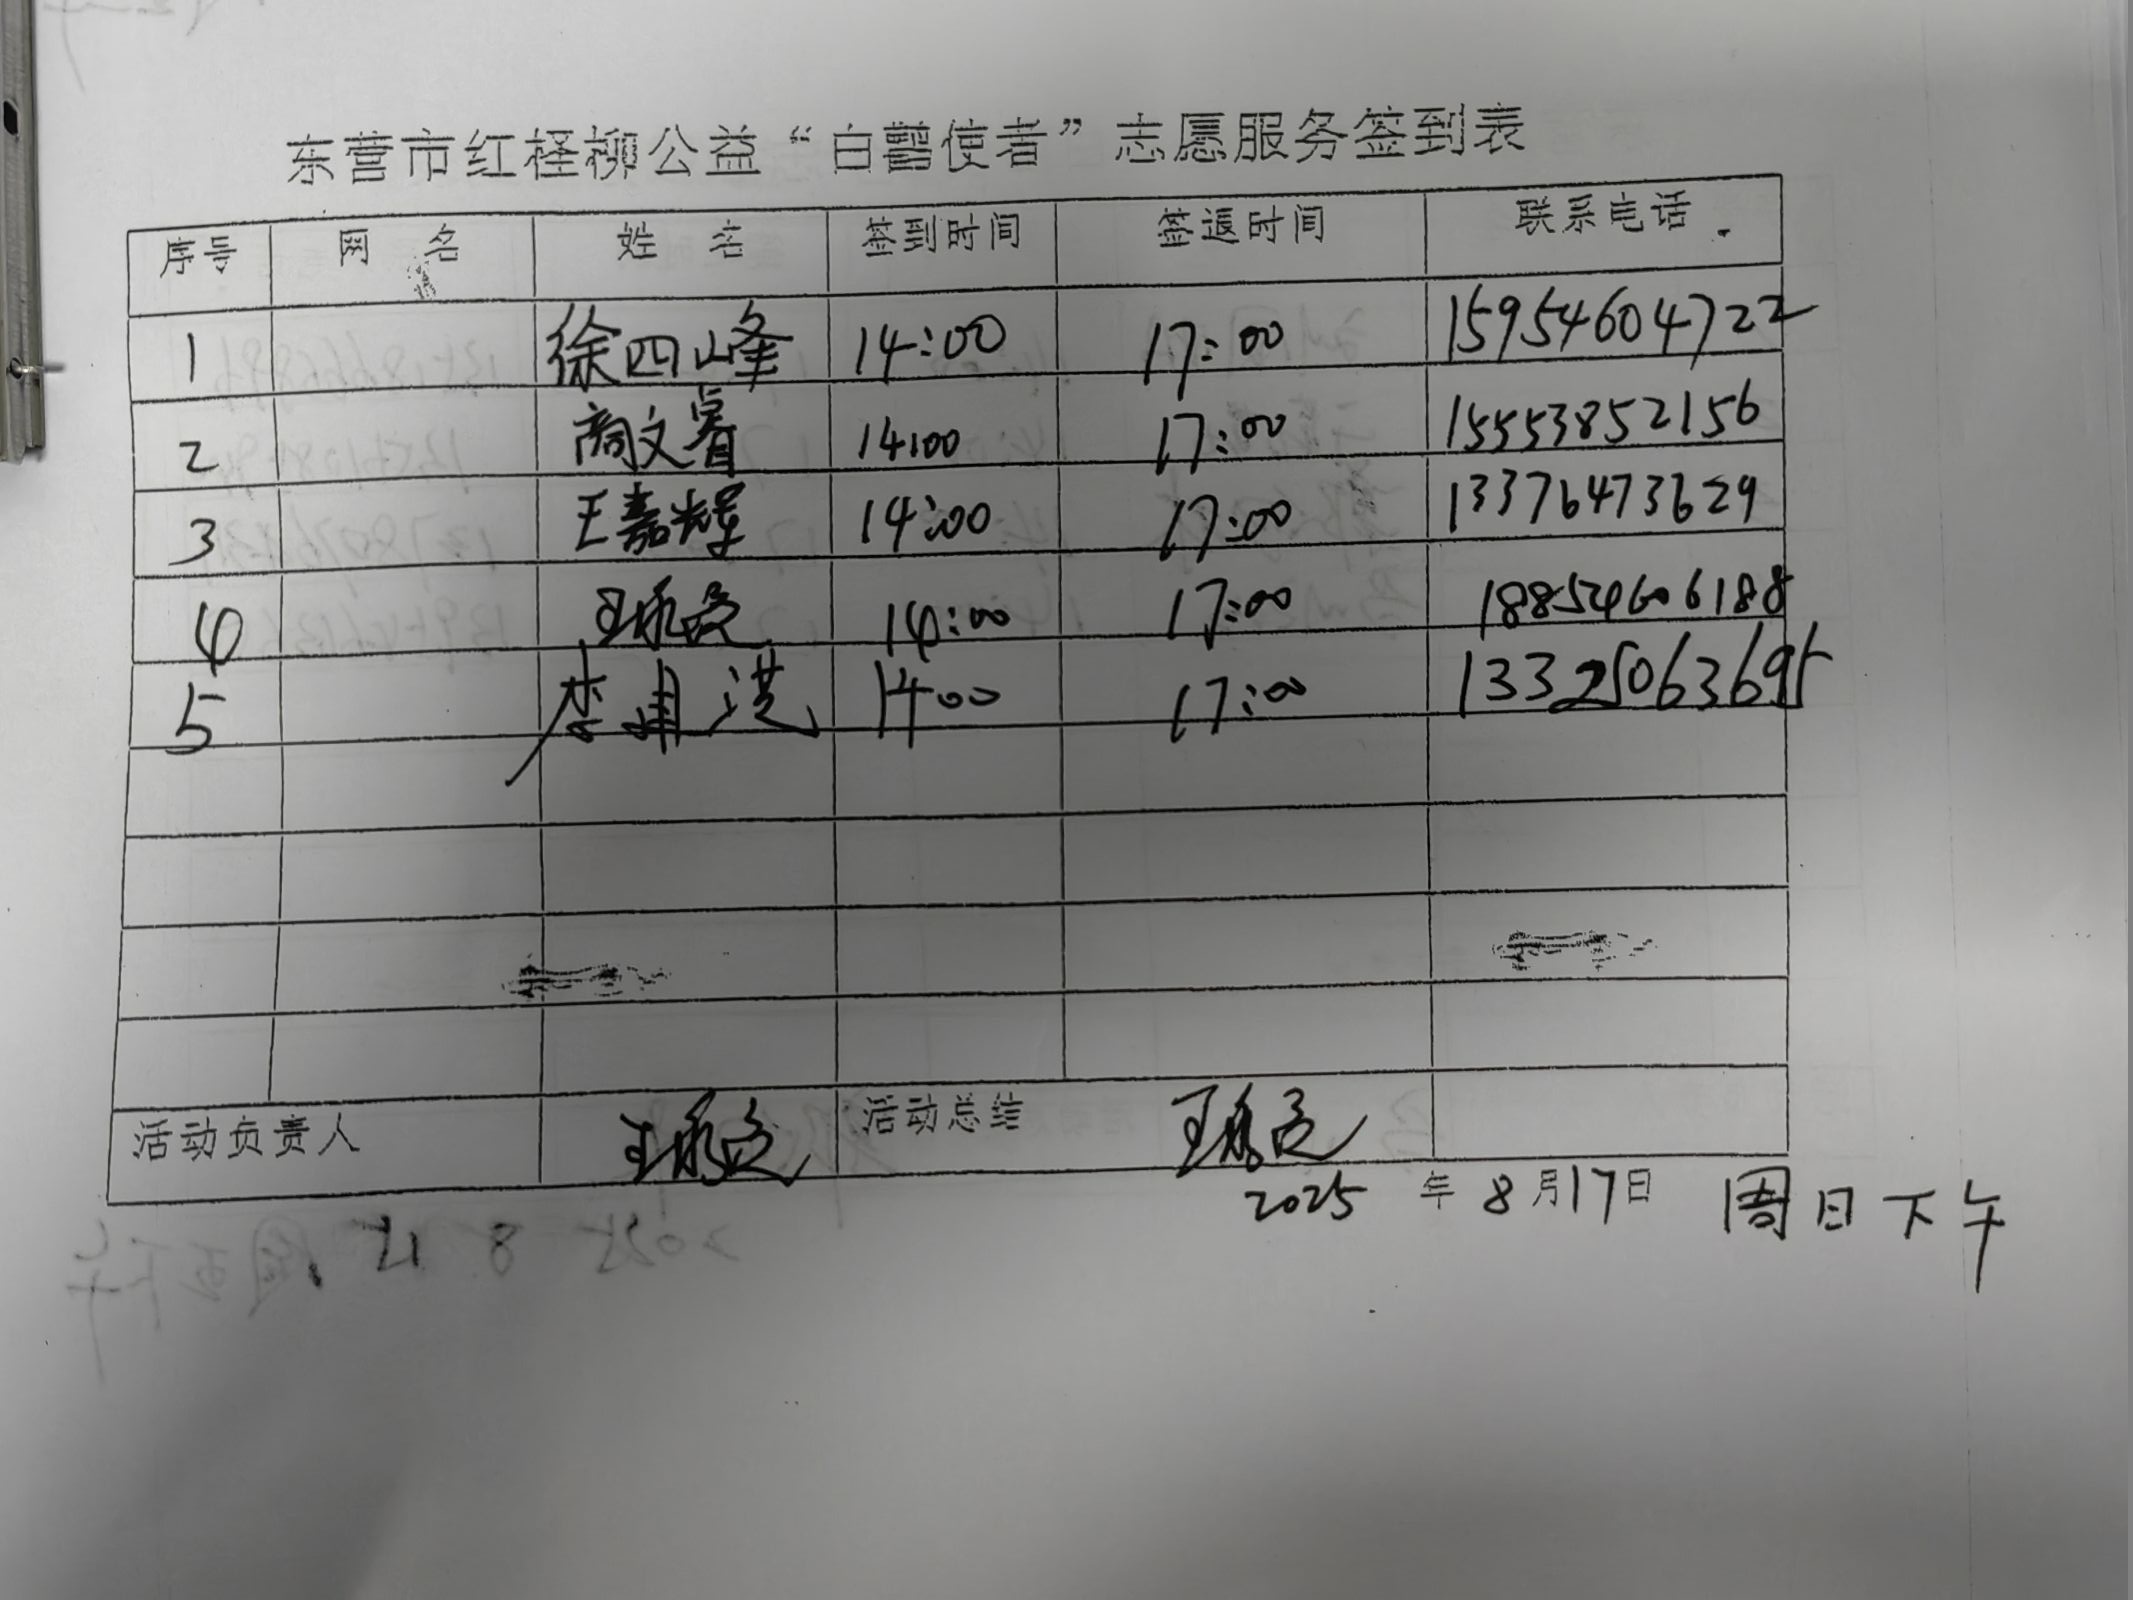 东营市红柽柳公益“白鹭使者”志愿服务签到表
序号 网名 姓名 签到时间 签退时间 联系电话
1 徐四峰 14:00 17:00 15954604722
2 商文睿 14:00 17:00 15553852156
3 王嘉辉 14:00 17:00 13376473629
4 14:00 17:00 18854606188
5 李 洪 1400 17:00 13325063695
活动负责人 活动总结
2025 年 8 月 17 日 周日下午